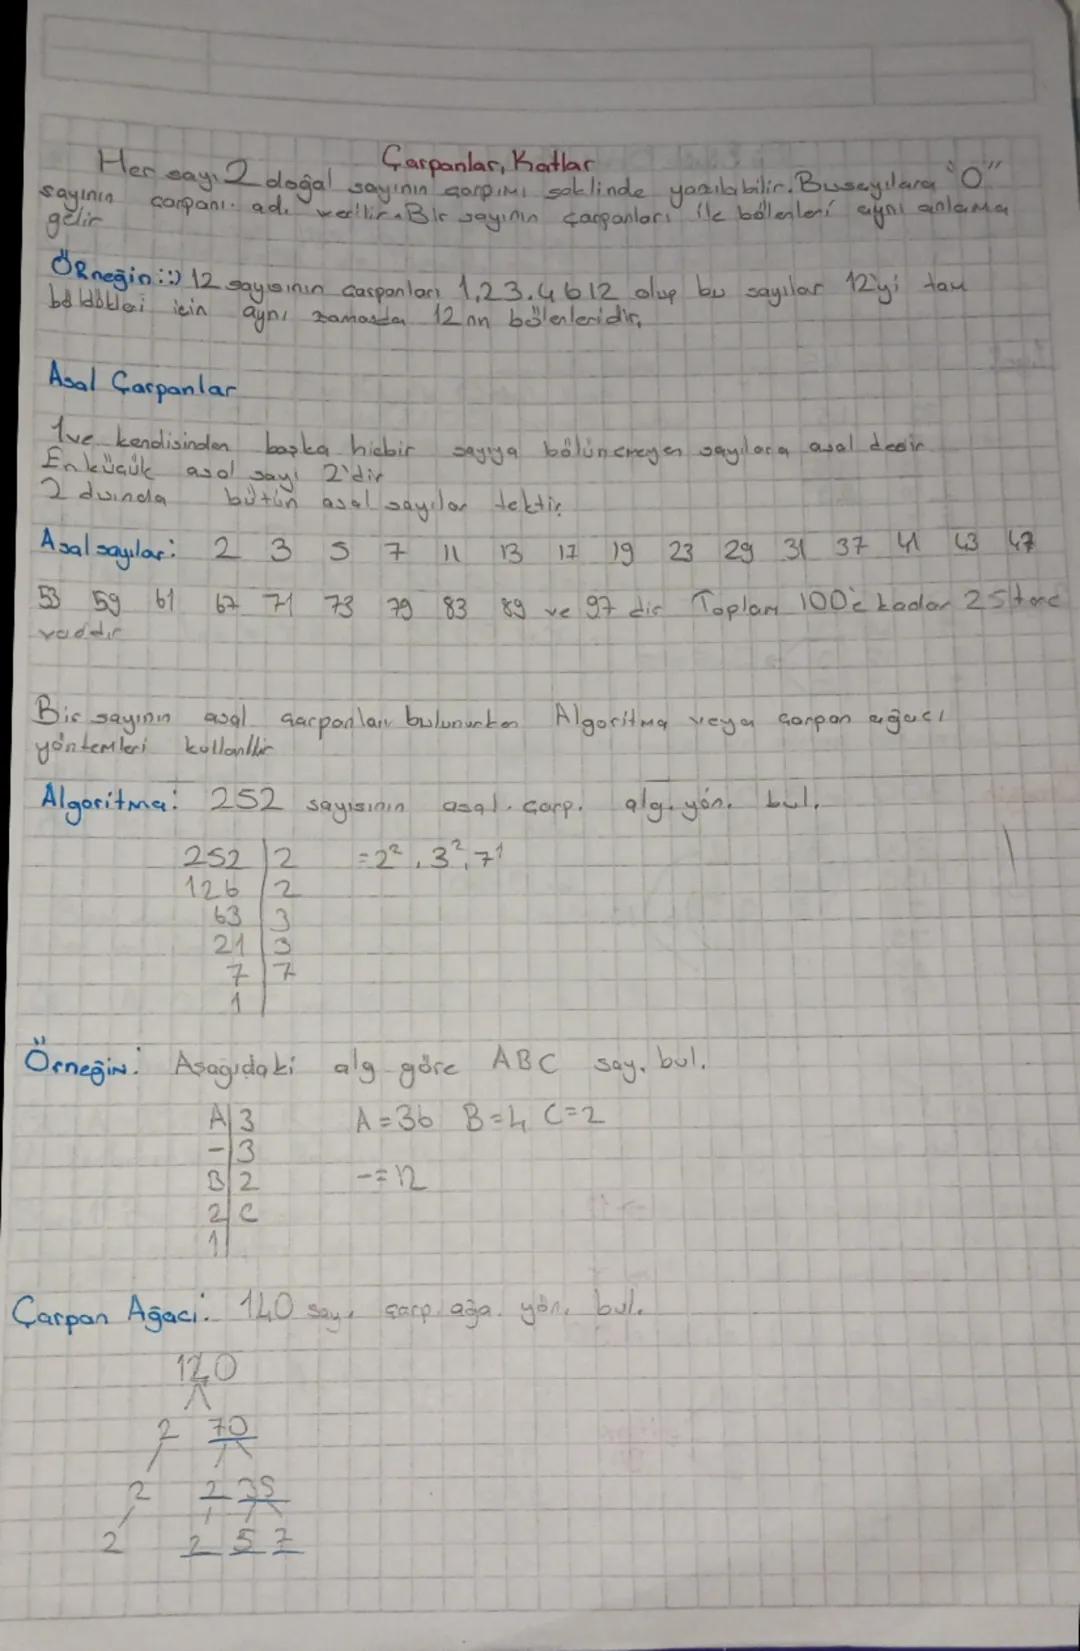 Çarpanlar, Katlar
Her sayı 2 doğal sayının çarpımı şeklinde yazılabilir. Bu sayılara "O"
sayının çarpanı adı verilir. Bir sayının çarpanları ile bölenleri aynı anlama
gelir
Örneğin::) 12 sayısının çarpanları 1,23.4 6 12 olup bu sayılar 12'yi tam
böldükleri için aynı zamanda 12 nn bölenleridir.
Asal Çarpanlar
1 ve kendisinden başka hiçbir sayıya bölünemeyen sayılara asal denir
En küçük asal sayı 2'dir
2 dışında bütün asal sayılar tektir
Asal sayılar: 2 3 5 7 11 13 17 19 23 29 31 37 41 43 47
53 59 61 67 71 73 79 83 89 ve 97 dir Toplam 100'e kadar 25 tane
vaddır
Bir sayının asal çarpanları bulunurken Algoritma veya çarpan ağacı
yöntemleri kullanılır
Algoritma: 252 sayısının asal. çarp. alg. yön. bul.
252 | 2 = 2², 3², 7¹
126 | 2
63 | 3
21 | 3
7 | 7
1
Örneğin: Aşağıdaki alg göre ABC say. bul.
A | 3 A = 36 B = 4 C = 2
- | 3
B | 2 - = 12
2 | C
1
Çarpan Ağacı: 140 say. çarp. ağa. yön. bul.
140
2 70
2 2 35
2 2 5 7